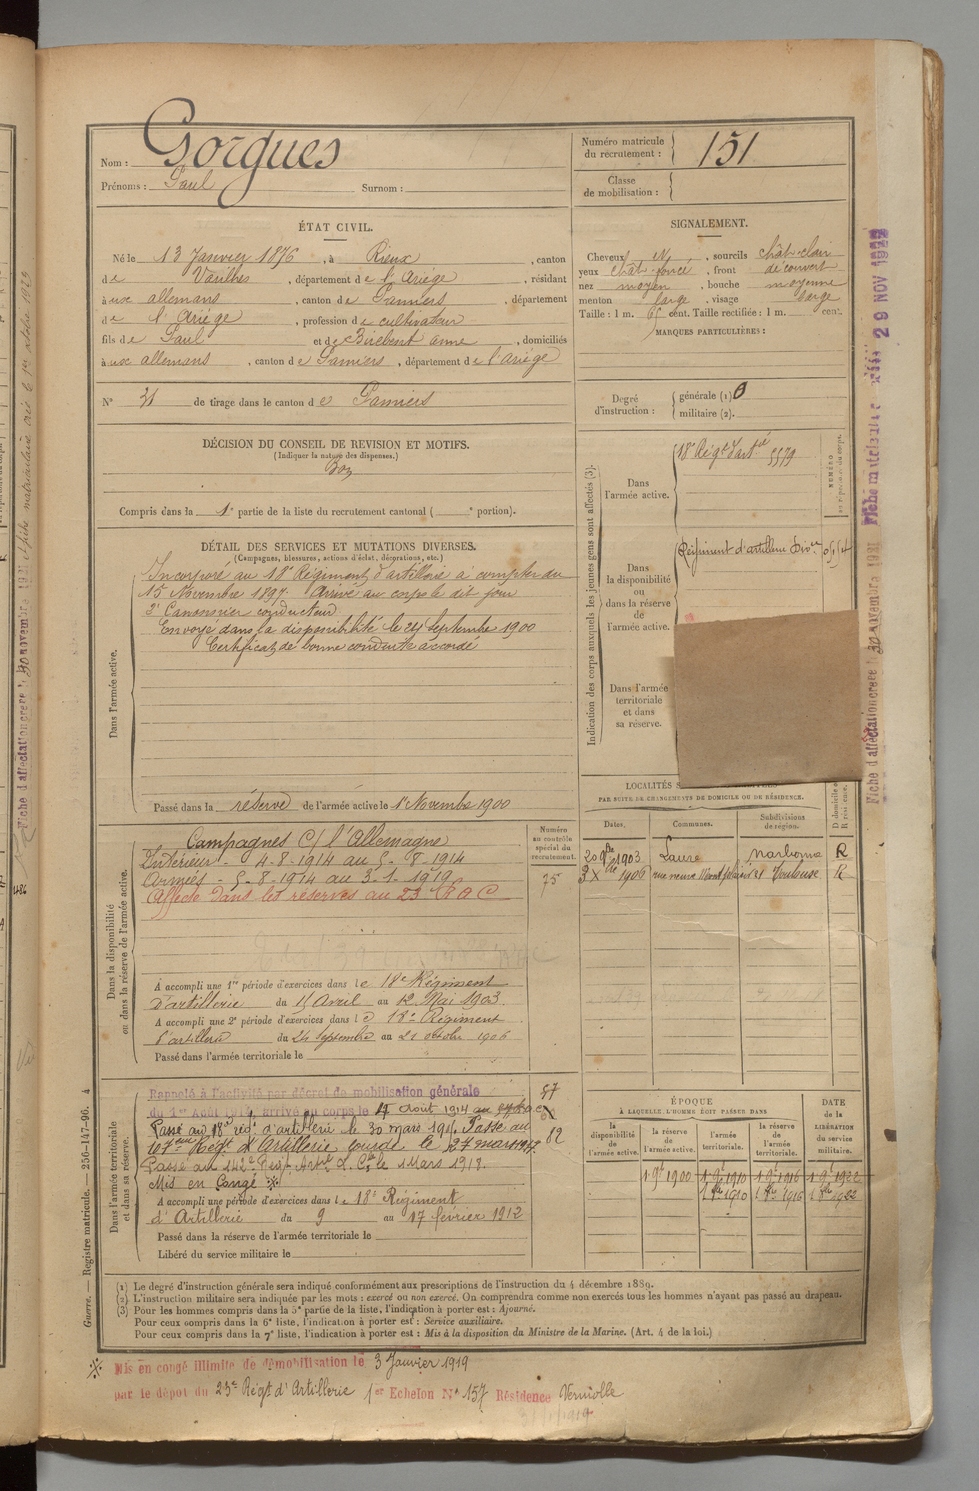 Nom : Gorgues
Prénoms : Paul Surnom :
Numéro matricule du recrutement : 151
Classe de mobilisation :
ÉTAT CIVIL.
Né le 13 Janvier 1876, à Rieux, canton
de Varilhes, département de l'Ariège, résidant
à aux allemans, canton de Pamiers, département
de l'Ariège, profession de cultivateur
fils de Paul et de Birebent anne, domiciliés
à aux allemans, canton de Pamiers, département de l'ariège
N° 31 de tirage dans le canton de Pamiers
SIGNALEMENT.
Cheveux N, sourcils chât-clair
yeux chât-foncé, front découvert
nez moyen, bouche moyenne
menton large, visage large
Taille : 1 m. 65 cent. Taille rectifiée : 1 m. cent.
MARQUES PARTICULIÈRES :
Degré d'instruction : générale (1) 0
militaire (2).
DÉCISION DU CONSEIL DE REVISION ET MOTIFS.
(Indiquer la nature des dispenses.)
Bon
Compris dans la 1e partie de la liste du recrutement cantonal ( e portion).
DÉTAIL DES SERVICES ET MUTATIONS DIVERSES.
(Campagnes, blessures, actions d'éclat, décorations, etc.)
Dans l'armée active.
Incorporé au 18e Régiment d'artillerie à compter du
15 Novembre 1897. Arrivé au corps le dit jour
2e Canonnier conducteur
Envoyé dans la disponibilité le 24 Septembre 1900
Certificat de bonne conduite accordé
Passé dans la réserve de l'armée active le 1e Novembre 1900
Indication des corps auxquels les jeunes gens sont affectés (3).
Dans l'armée active.
18e Régt d'artie 5579
NUMÉRO
Dans la disponibilité ou dans la réserve de l'armée active.
Régiment d'artillerie
Dans l'armée territoriale et dans sa réserve.
LOCALITÉS
PAR SUITE DE CHANGEMENTS DE DOMICILE OU DE RÉSIDENCE.
Dates. Communes. Subdivisions de région. D domicile ou R résidence.
20 9bre 1903 Laure Narbonne R
1906 Toulouse R
Dans la disponibilité ou dans la réserve de l'armée active.
Numéro au contrôle spécial du recrutement.
75
Campagnes C/ l'Allemagne
Intérieur - 4-8-1914 au 5-8-1914
Armées - 5-8-1914 au 3-1-1919
Affecté dans les réserves au 23e R A C
A accompli une 1re période d'exercices dans le 18e Régiment
d'artillerie du 15 Avril au 12 Mai 1903.
A accompli une 2e période d'exercices dans le 18e Régiment
d'artillerie du 24 septembre au 21 octobre 1906
Passé dans l'armée territoriale le
Dans l'armée territoriale et dans sa réserve.
Rappelé à l'activité par décret de mobilisation générale
du 1er Août 1914, arrivé au corps le 4 Août 1914
Passé au 18e rég. d'artillerie le 30 mars 1916. Passé au
107eme Régt d'Artillerie lourde le 27 mars 1917.
Passé au 142e Régt Artie L. le 1 Mars 1918.
Mis en Congé ※
57
82
A accompli une période d'exercices dans le 18e Régiment
d'Artillerie du 9 au 17 février 1912
Passé dans la réserve de l'armée territoriale le
Libéré du service militaire le
ÉPOQUE
À LAQUELLE L'HOMME DOIT PASSER DANS
la disponibilité de l'armée active. la réserve de l'armée active. l'armée territoriale. la réserve de l'armée territoriale.
DATE de la LIBÉRATION du service militaire.
1 9e 1900 1 9e 1910 1 9e 1916 1 9e 1922
1 8bre 1910 1 8bre 1916 1 8bre 1922
(1) Le degré d'instruction générale sera indiqué conformément aux prescriptions de l'instruction du 4 décembre 1889.
(2) L'instruction militaire sera indiquée par les mots : exercé ou non exercé. On comprendra comme non exercés tous les hommes n'ayant pas passé au drapeau.
(3) Pour les hommes compris dans la 5e partie de la liste, l'indication à porter est : Ajourné.
Pour ceux compris dans la 6e liste, l'indication à porter est : Service auxiliaire.
Pour ceux compris dans la 7e liste, l'indication à porter est : Mis à la disposition du Ministre de la Marine. (Art. 4 de la loi.)
※ Mis en congé illimité de démobilisation le 3 Janvier 1919
par le dépôt du 23e Régt d'Artillerie 1er Echelon N° 157 Résidence Verniolle
Guerre. — Registre matricule. — 256-147-96. 4
Fiche d'affectation créée le 30 novembre 1921
Fiche matriculaire 29 NOV 1922